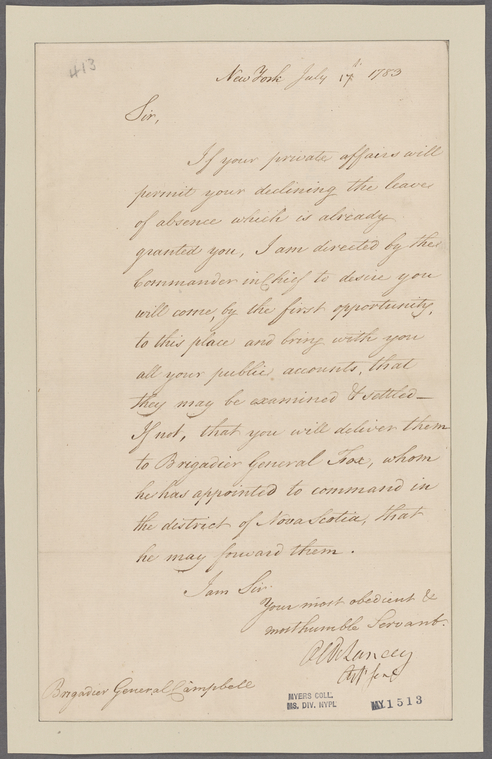 413
New York July 17th 1783
Sir,
If your private affairs will
permit your declining the leave
of absence which is already
granted you, I am directed by the
Commander in Chief to desire you
will come, by the first opportunity,
to this place and bring with you
all your public accounts, that
they may be examined & settled—
If not, that you will deliver them
to Brigadier General Fox, whom
he has appointed to command in
the district of Nova Scotia, that
he may forward them.
I am Sir
Your most obedient &
most humble Servant.
Ol DeLancey
Brigadier General Campbell
MYERS COLL.
MS. DIV. NYPL
MY1513